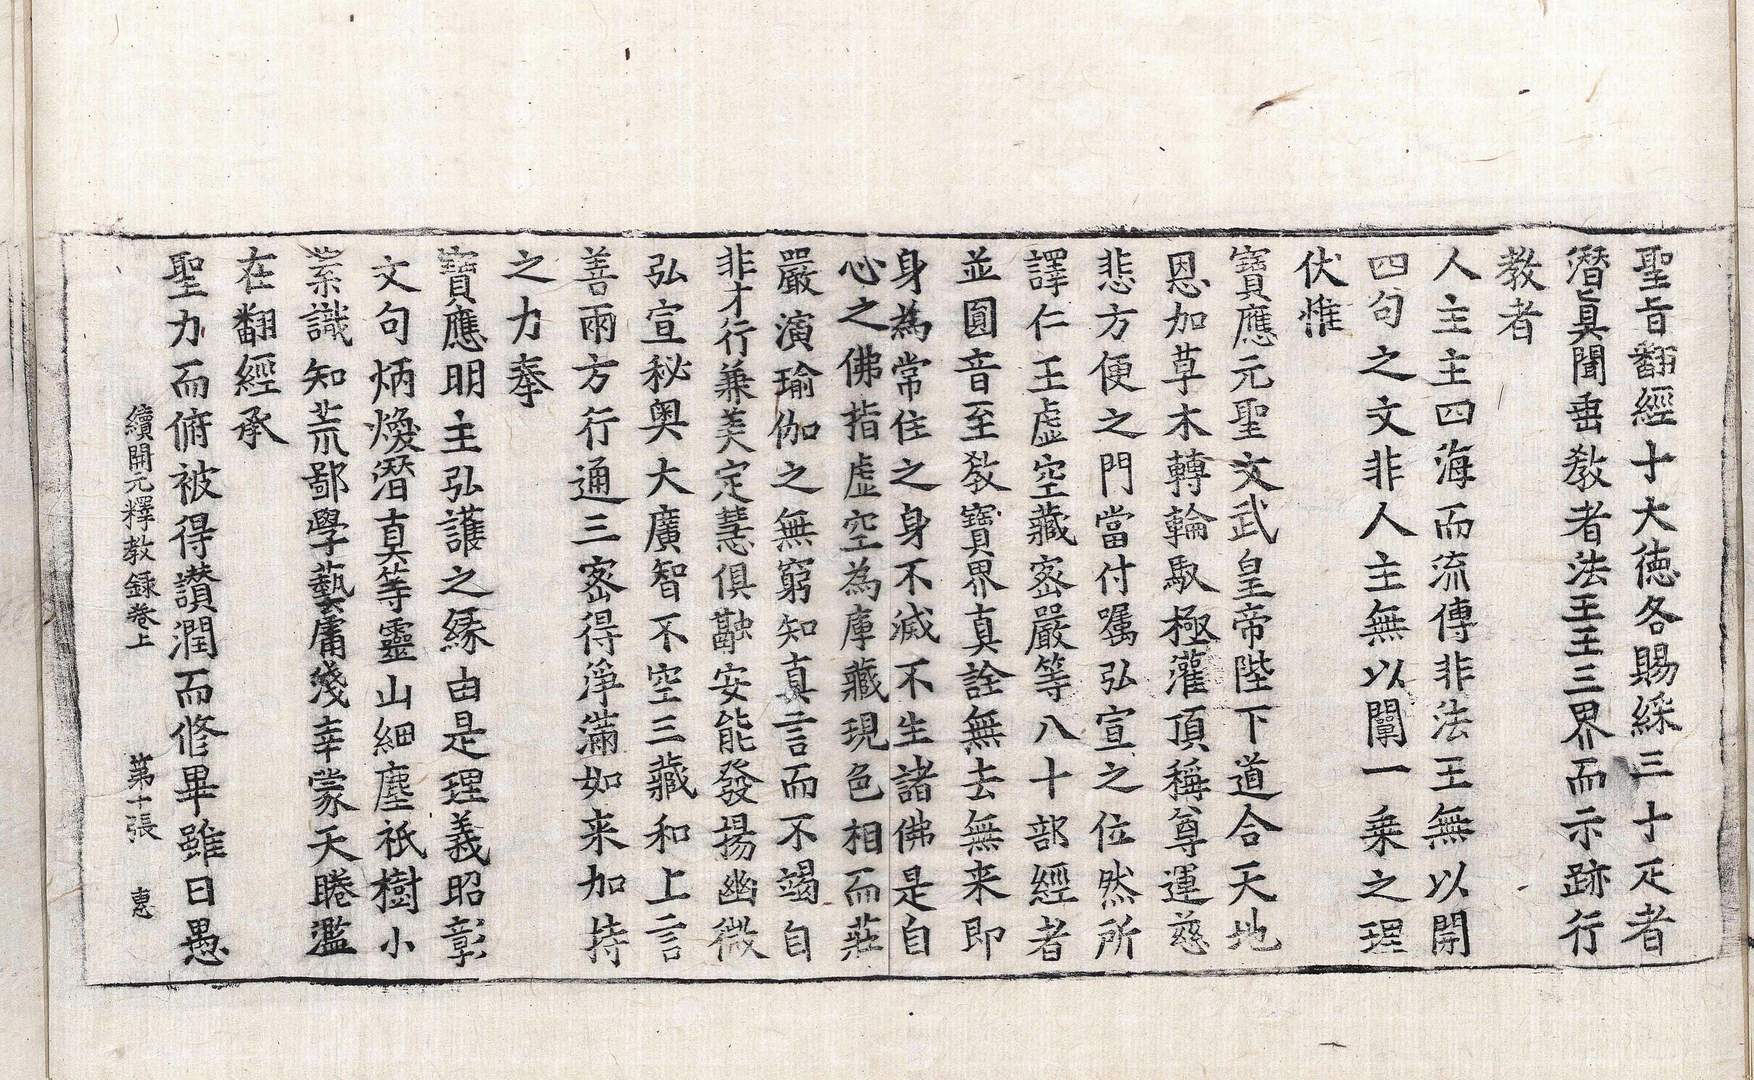 聖旨翻經十大徳各賜綵三十疋者
潜眞聞垂教者法王王三界而示跡行
教者
人主主四海而流傳非法王無以開
四句之文非人主無以闡一乗之理
伏惟
寶應元聖文武皇帝陛下道合天地
恩加草木轉輪馭極灌頂稱尊運慈
悲方便之門當付囑弘宣之位然所
譯仁王虚空藏密嚴等八十部經者
並圓音至教寶界真詮無去無来即
身為常住之身不滅不生諸佛是自
心之佛指虚空為庫藏現色相而莊
嚴演瑜伽之無窮知真言而不竭自
非才行兼美定慧俱融安能發揚幽微
弘宣秘奥大廣智不空三藏和上言
善兩方行通三密得淨滿如来加持
之力奉
寶應明主弘護之縁由是理義昭彰
文句炳煥潜真等靈山細塵祇樹小
葉識知荒鄙學藝庸淺幸蒙天睠濫
在翻經承
聖力而俯被得讃潤而修畢雖曰愚
續開元釋教録卷上 第十張 惠